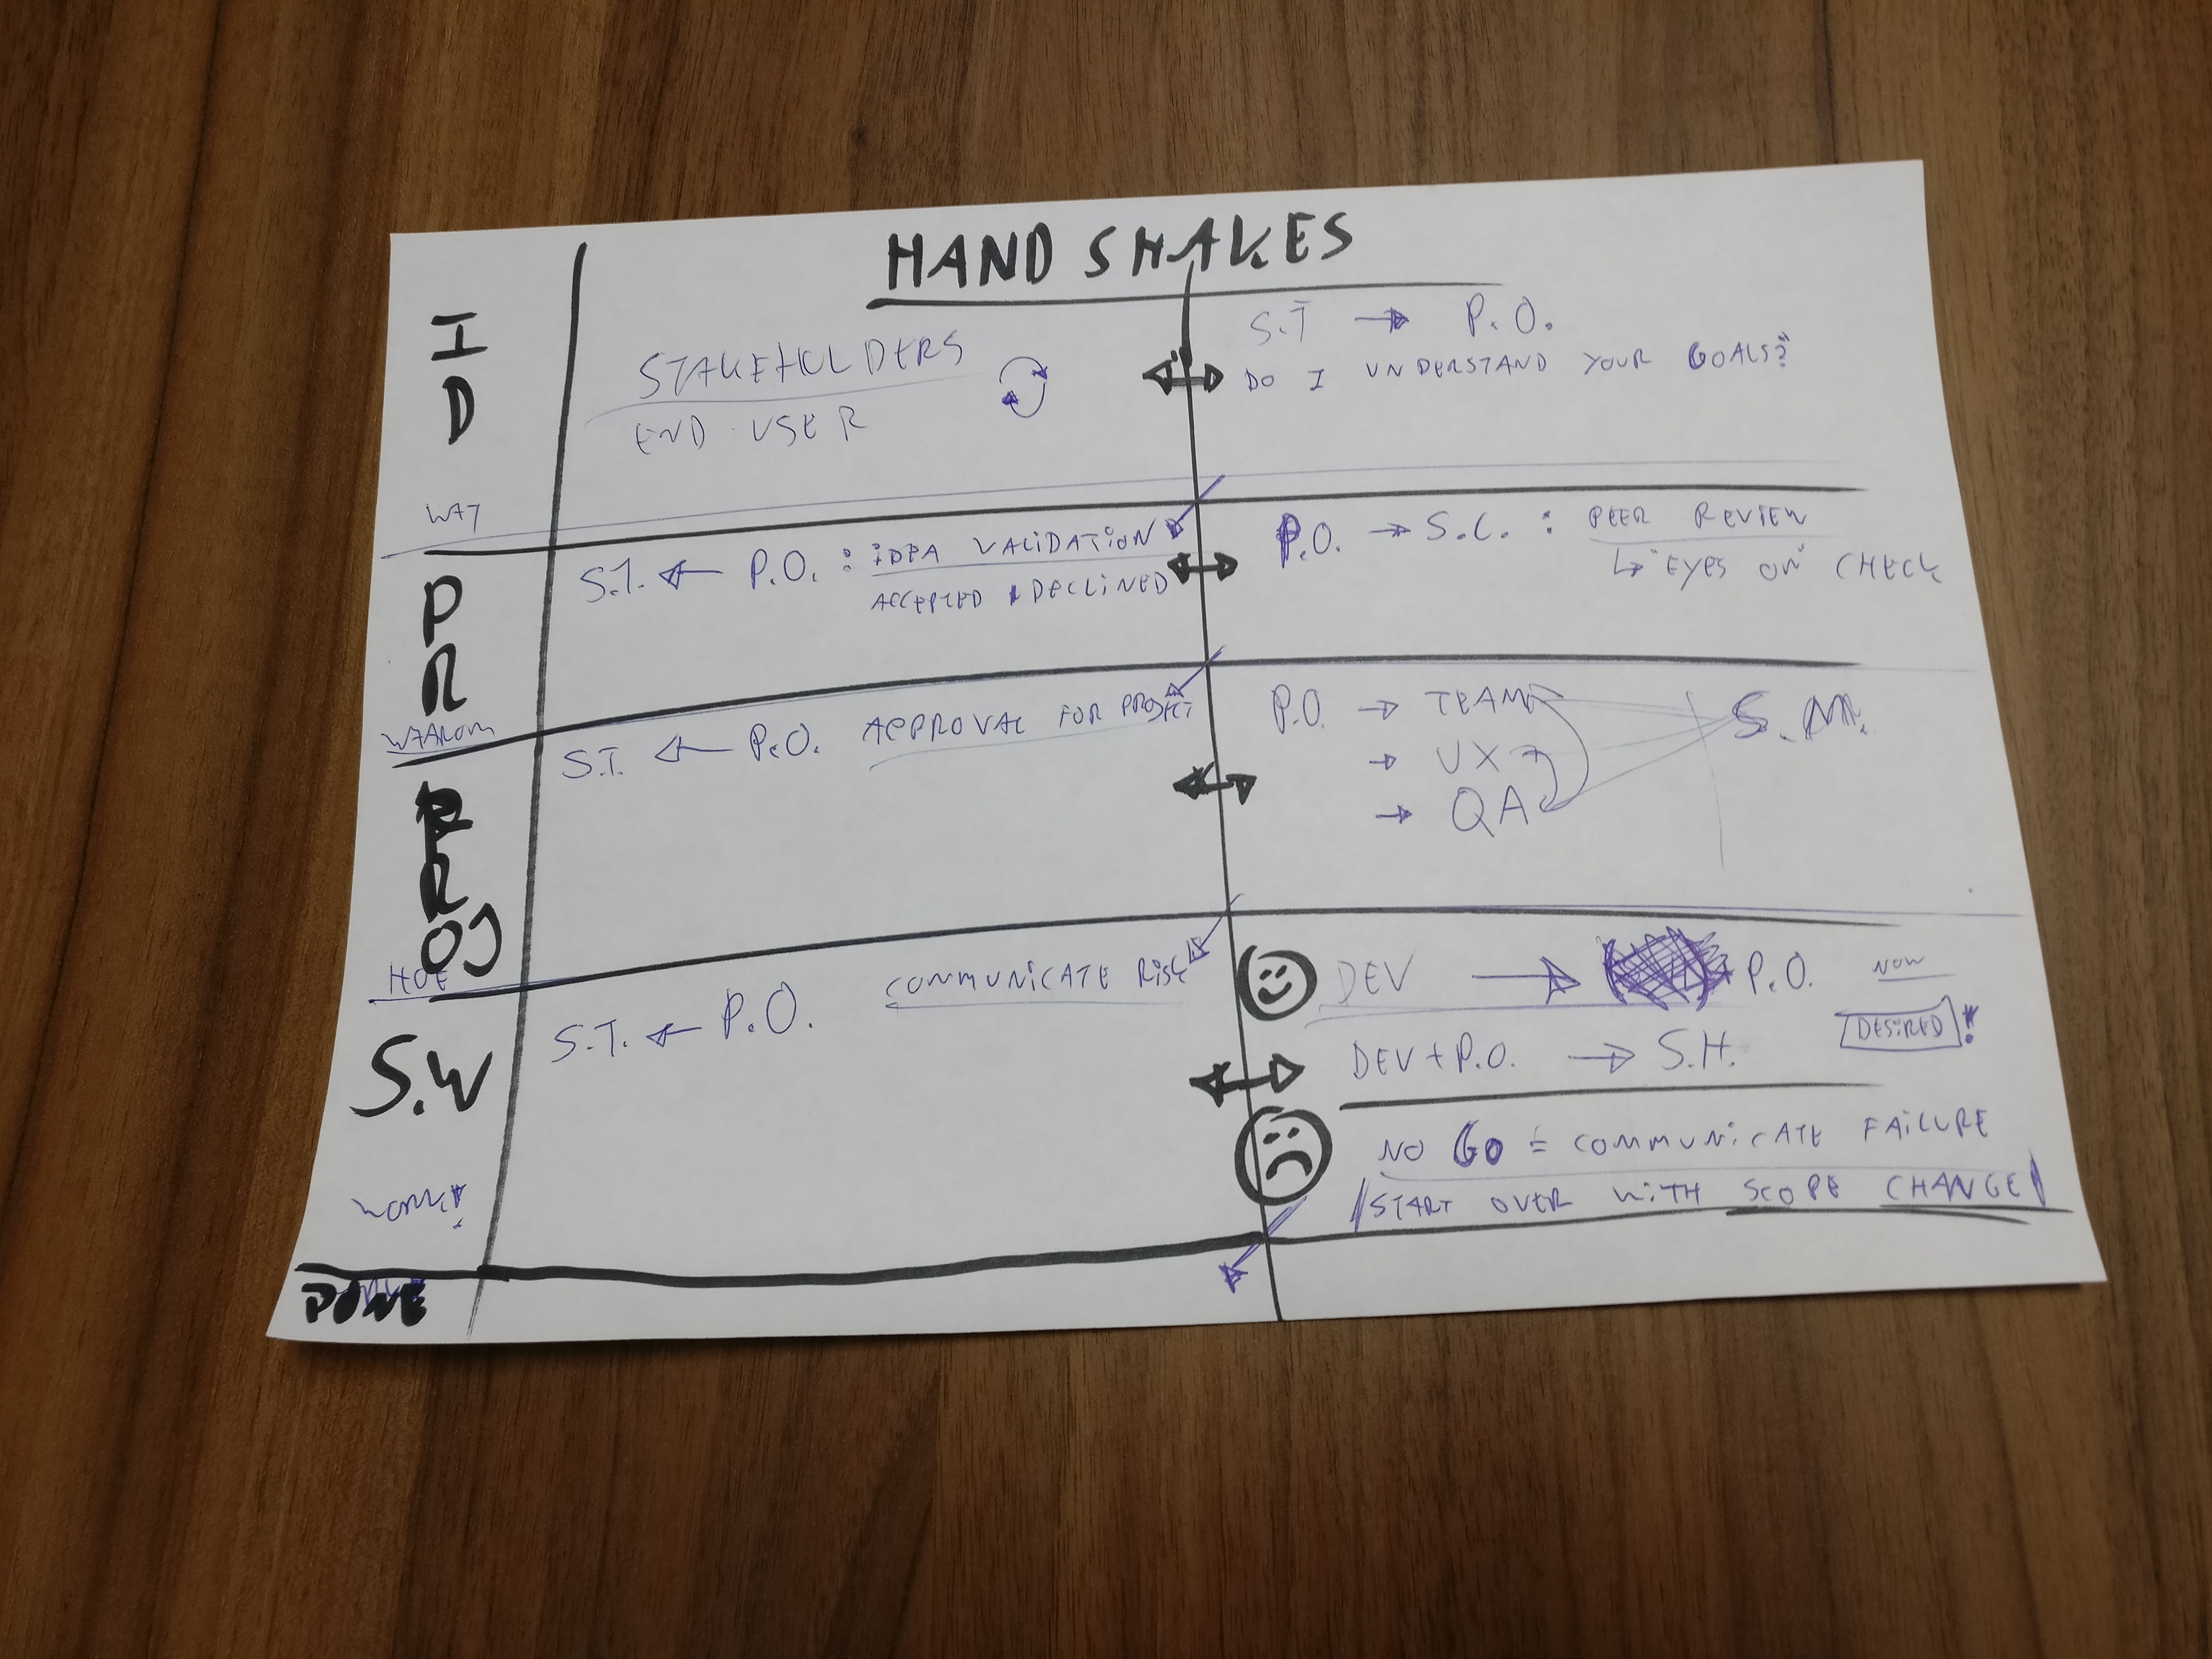 HAND SHAKES
ID
WAT
STAKEHOLDERS
END USER
S.T → P.O.
DO I UNDERSTAND YOUR GOALS?
PR
WAAROM
S.T. ← P.O. : IDEA VALIDATION
ACCEPTED DECLINED
P.O. → S.C. : PEER REVIEW
↳ "EYES ON" CHECK
PROJ
HOE
S.T. ← P.O. APPROVAL FOR PROJECT
P.O. → TEAM
→ UX
→ QA
S.M.
S.W
WORK!
S.T. ← P.O. COMMUNICATE RISK
DEV → P.O. NOW
DEV + P.O. → S.H. DESIRED!
NO GO = COMMUNICATE FAILURE
/START OVER WITH SCOPE CHANGE
DONE